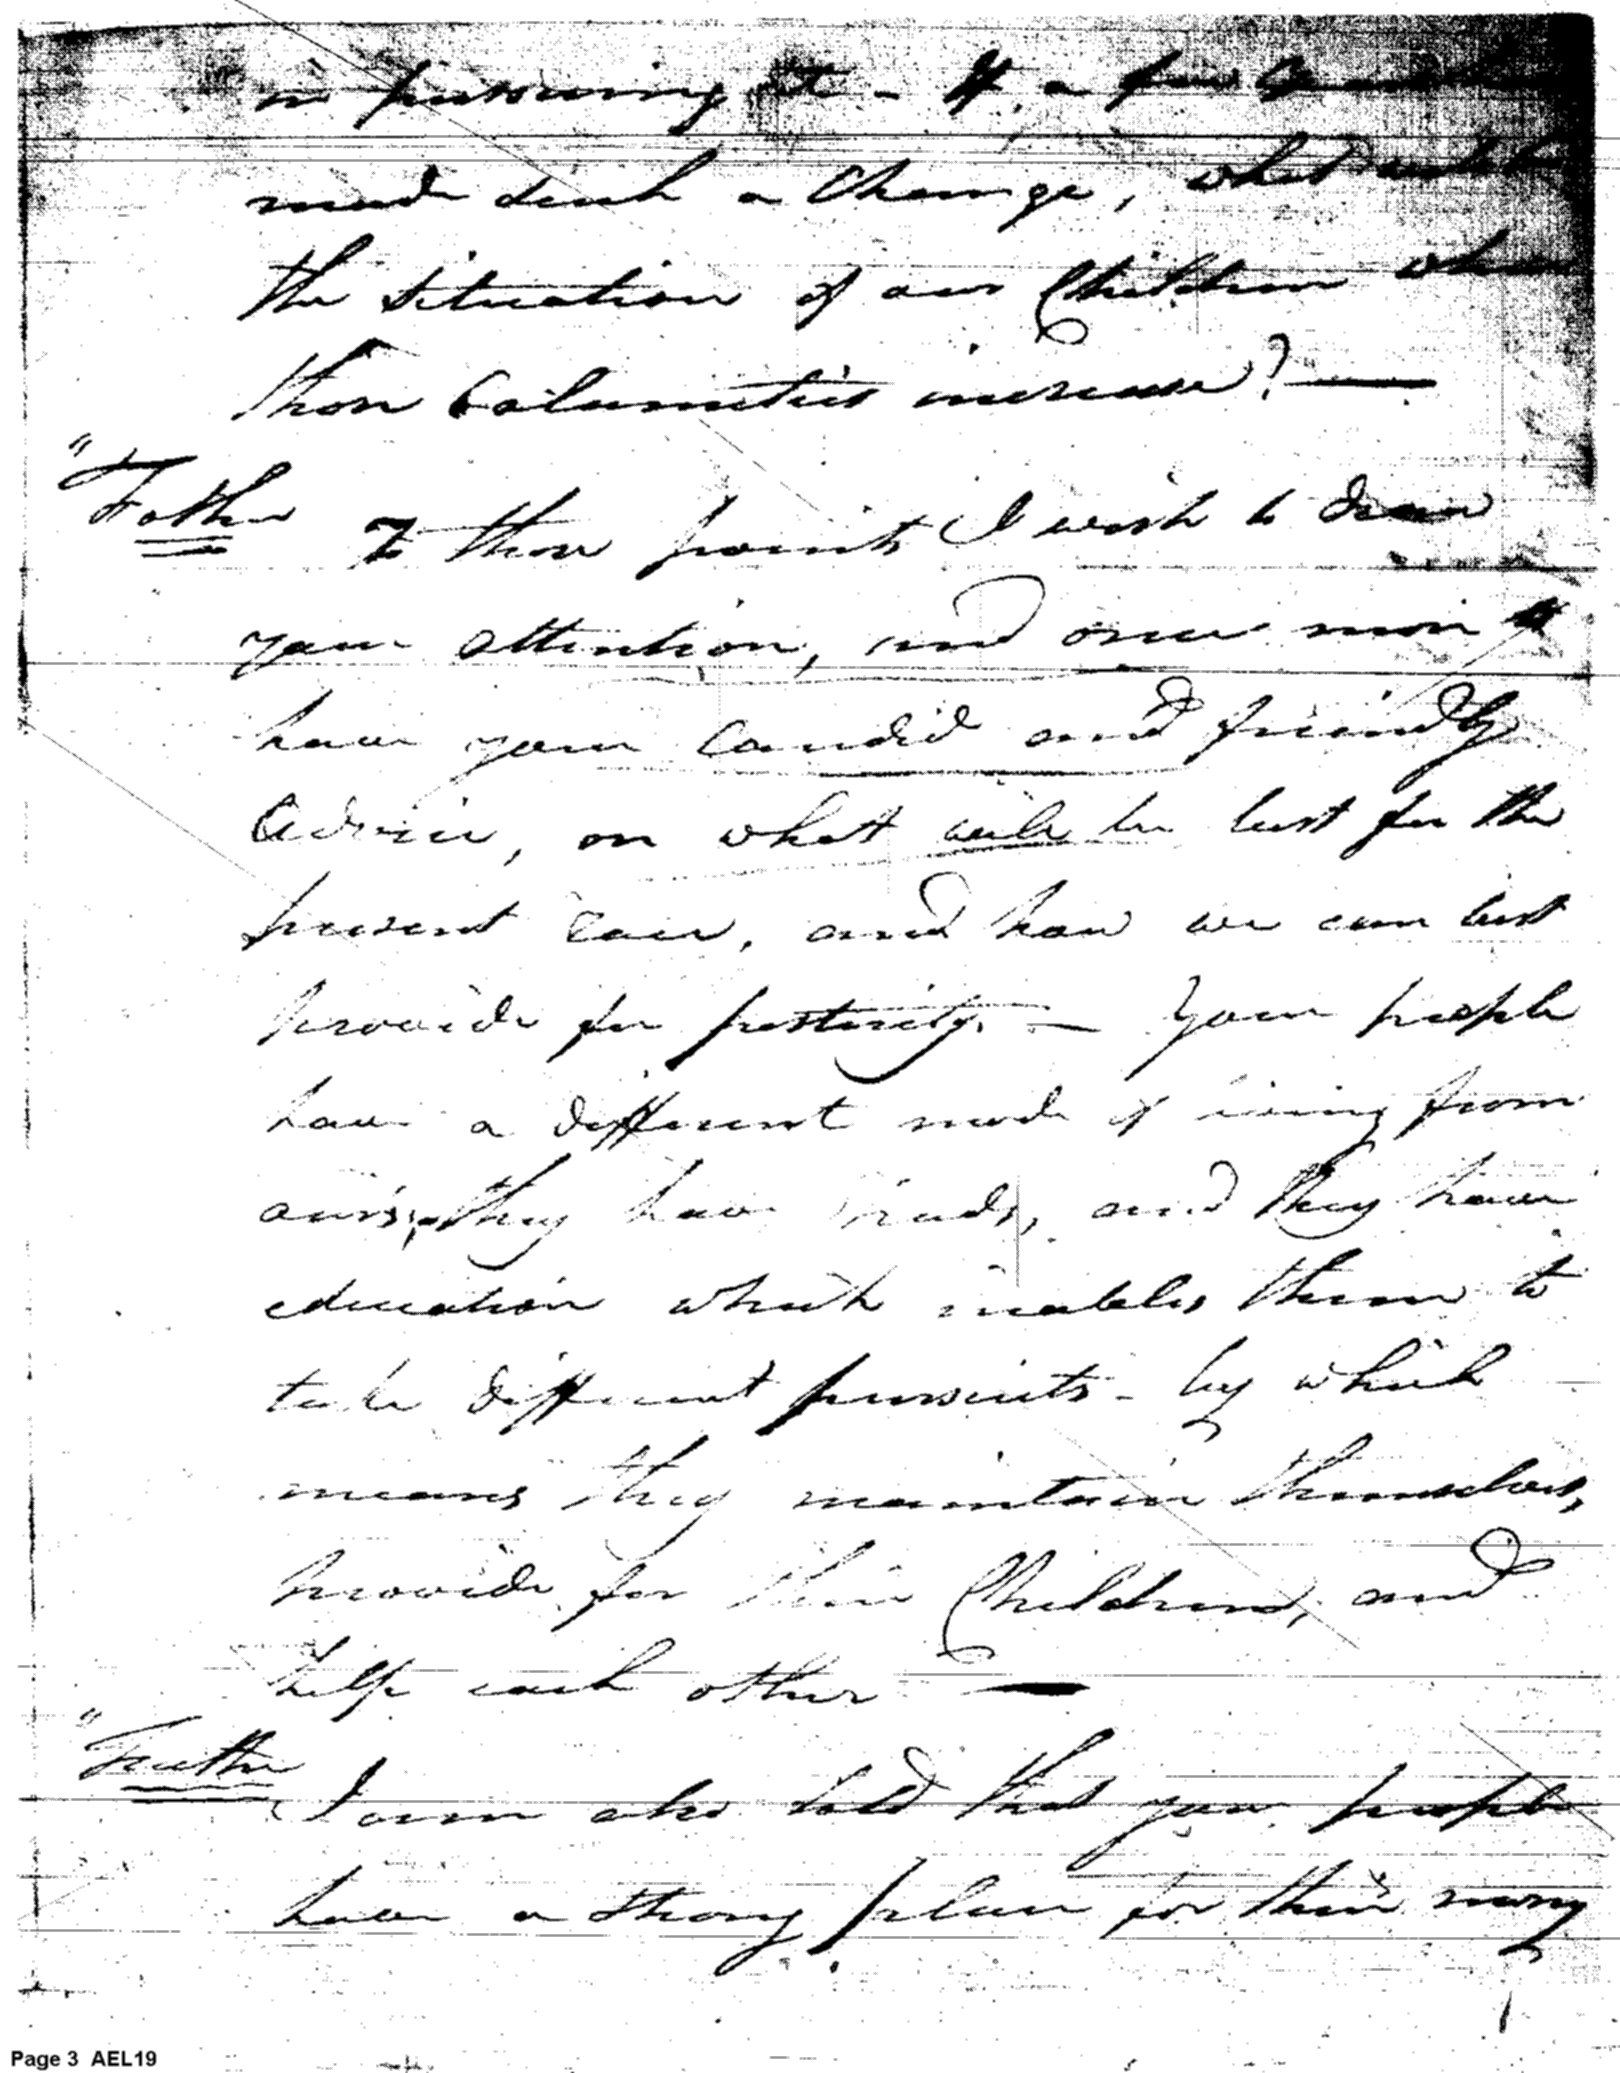 in pursuing it - If a few years
made such a Change, what will be
the situation of our Children when
those Calamities increase? —
"Father To those points I wish to draw
your attention, and once more to
have your Candid and friendly
Advice, on what will be best for the
present race, and how we can best
provide for posterity. — Your people
have a different mode of living from
ours, they have trades, and they have
education which enables them to
take different pursuits - by which
means they maintain themselves,
provide for their Children, and
help each other —
"Father I am also told that your people
have a strong place for their money
Page 3 AEL19